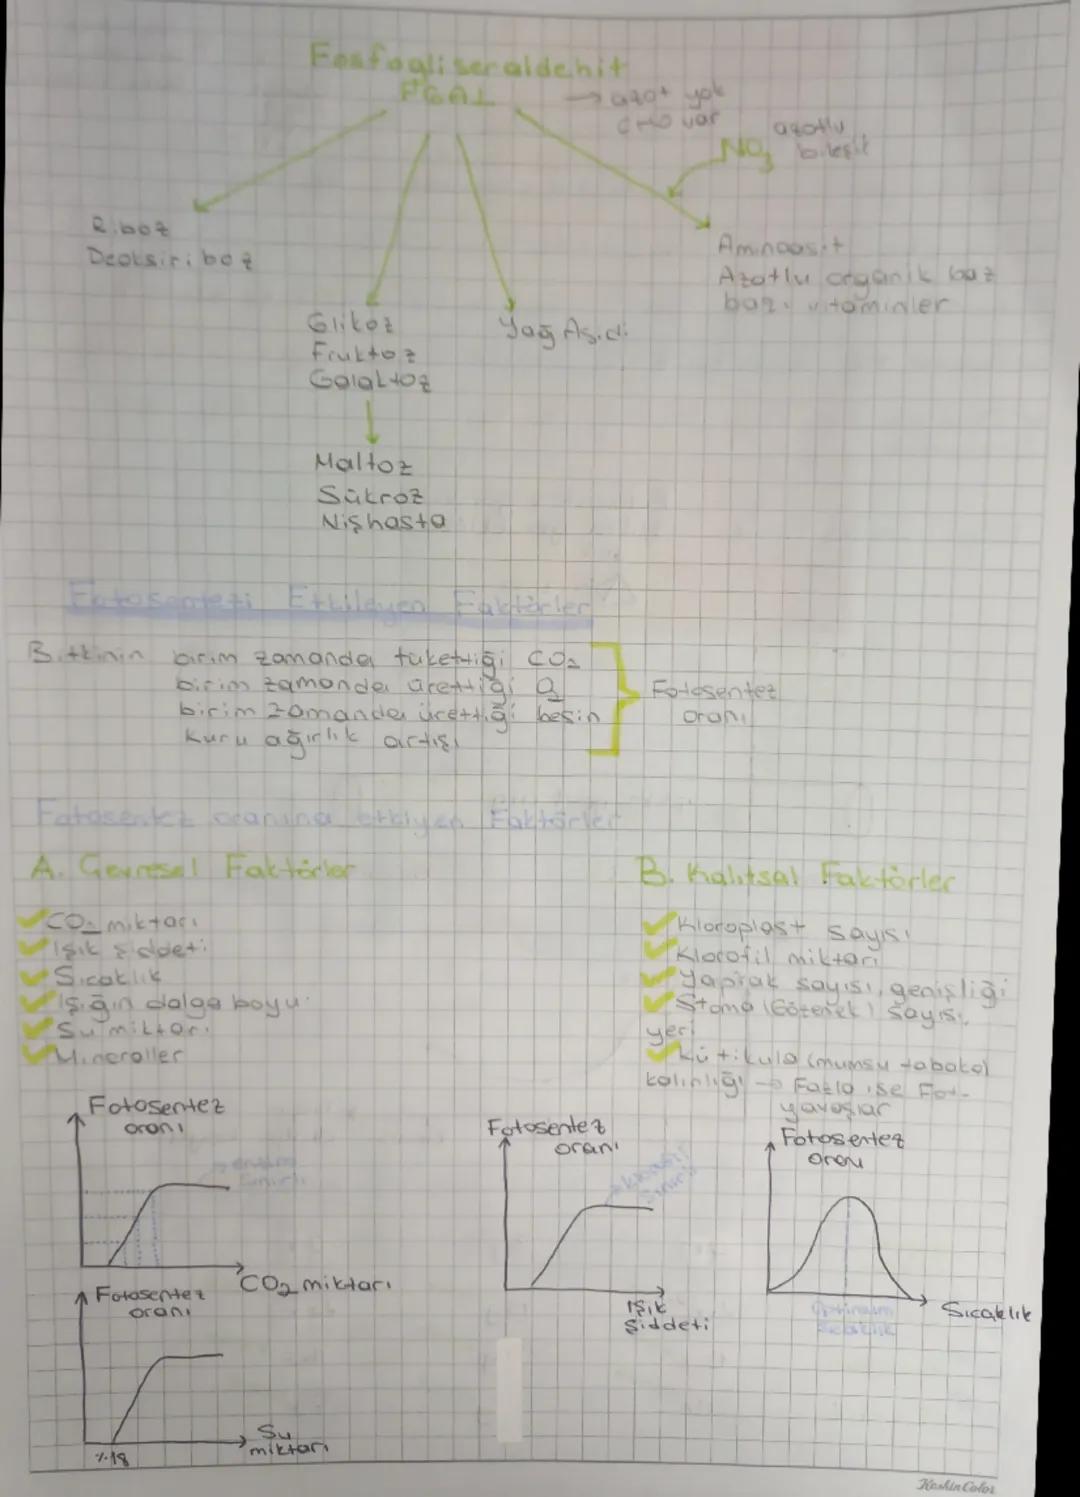 Fosfogliseraldehit
PGAL
→ azot yok
CHO var
azotlu
NO3 bileşik
Riboz
Deoksiriboz
Aminoasit
Azotlu organik baz
bazı vitaminler
Glikoz
Fruktoz
Galaktoz
Yağ Asidi
Maltoz
Sükroz
Nişhasta
Fotosentezi Etkileyen Faktörler
Bitkinin birim zamanda tükettiği CO2
birim zamanda ürettiği O2
birim zamanda ürettiği besin
kuru ağırlık artışı
Fotosentez
oranı
Fotosentez oranına etkiyen Faktörler
A. Çevresel Faktörler
CO2 miktarı
Işık şiddeti
Sıcaklık
Işığın dalga boyu
Su miktarı
Mineraller
B. Kalıtsal Faktörler
Kloroplast sayısı
Klorofil miktarı
Yaprak sayısı, genişliği
Stoma (Gözenek) sayısı,
yeri
Kütikula (mumsu tabaka)
kalınlığı → Fazla ise Fot.
yavaşlar
Fotosentez
oranı
CO2 miktarı
Fotosentez
oranı
Işık
şiddeti
Fotosentez
oranı
Optimum
Sıcaklık
Sıcaklık
Fotosentez
oranı
%18
Su
miktarı
KeskinColor